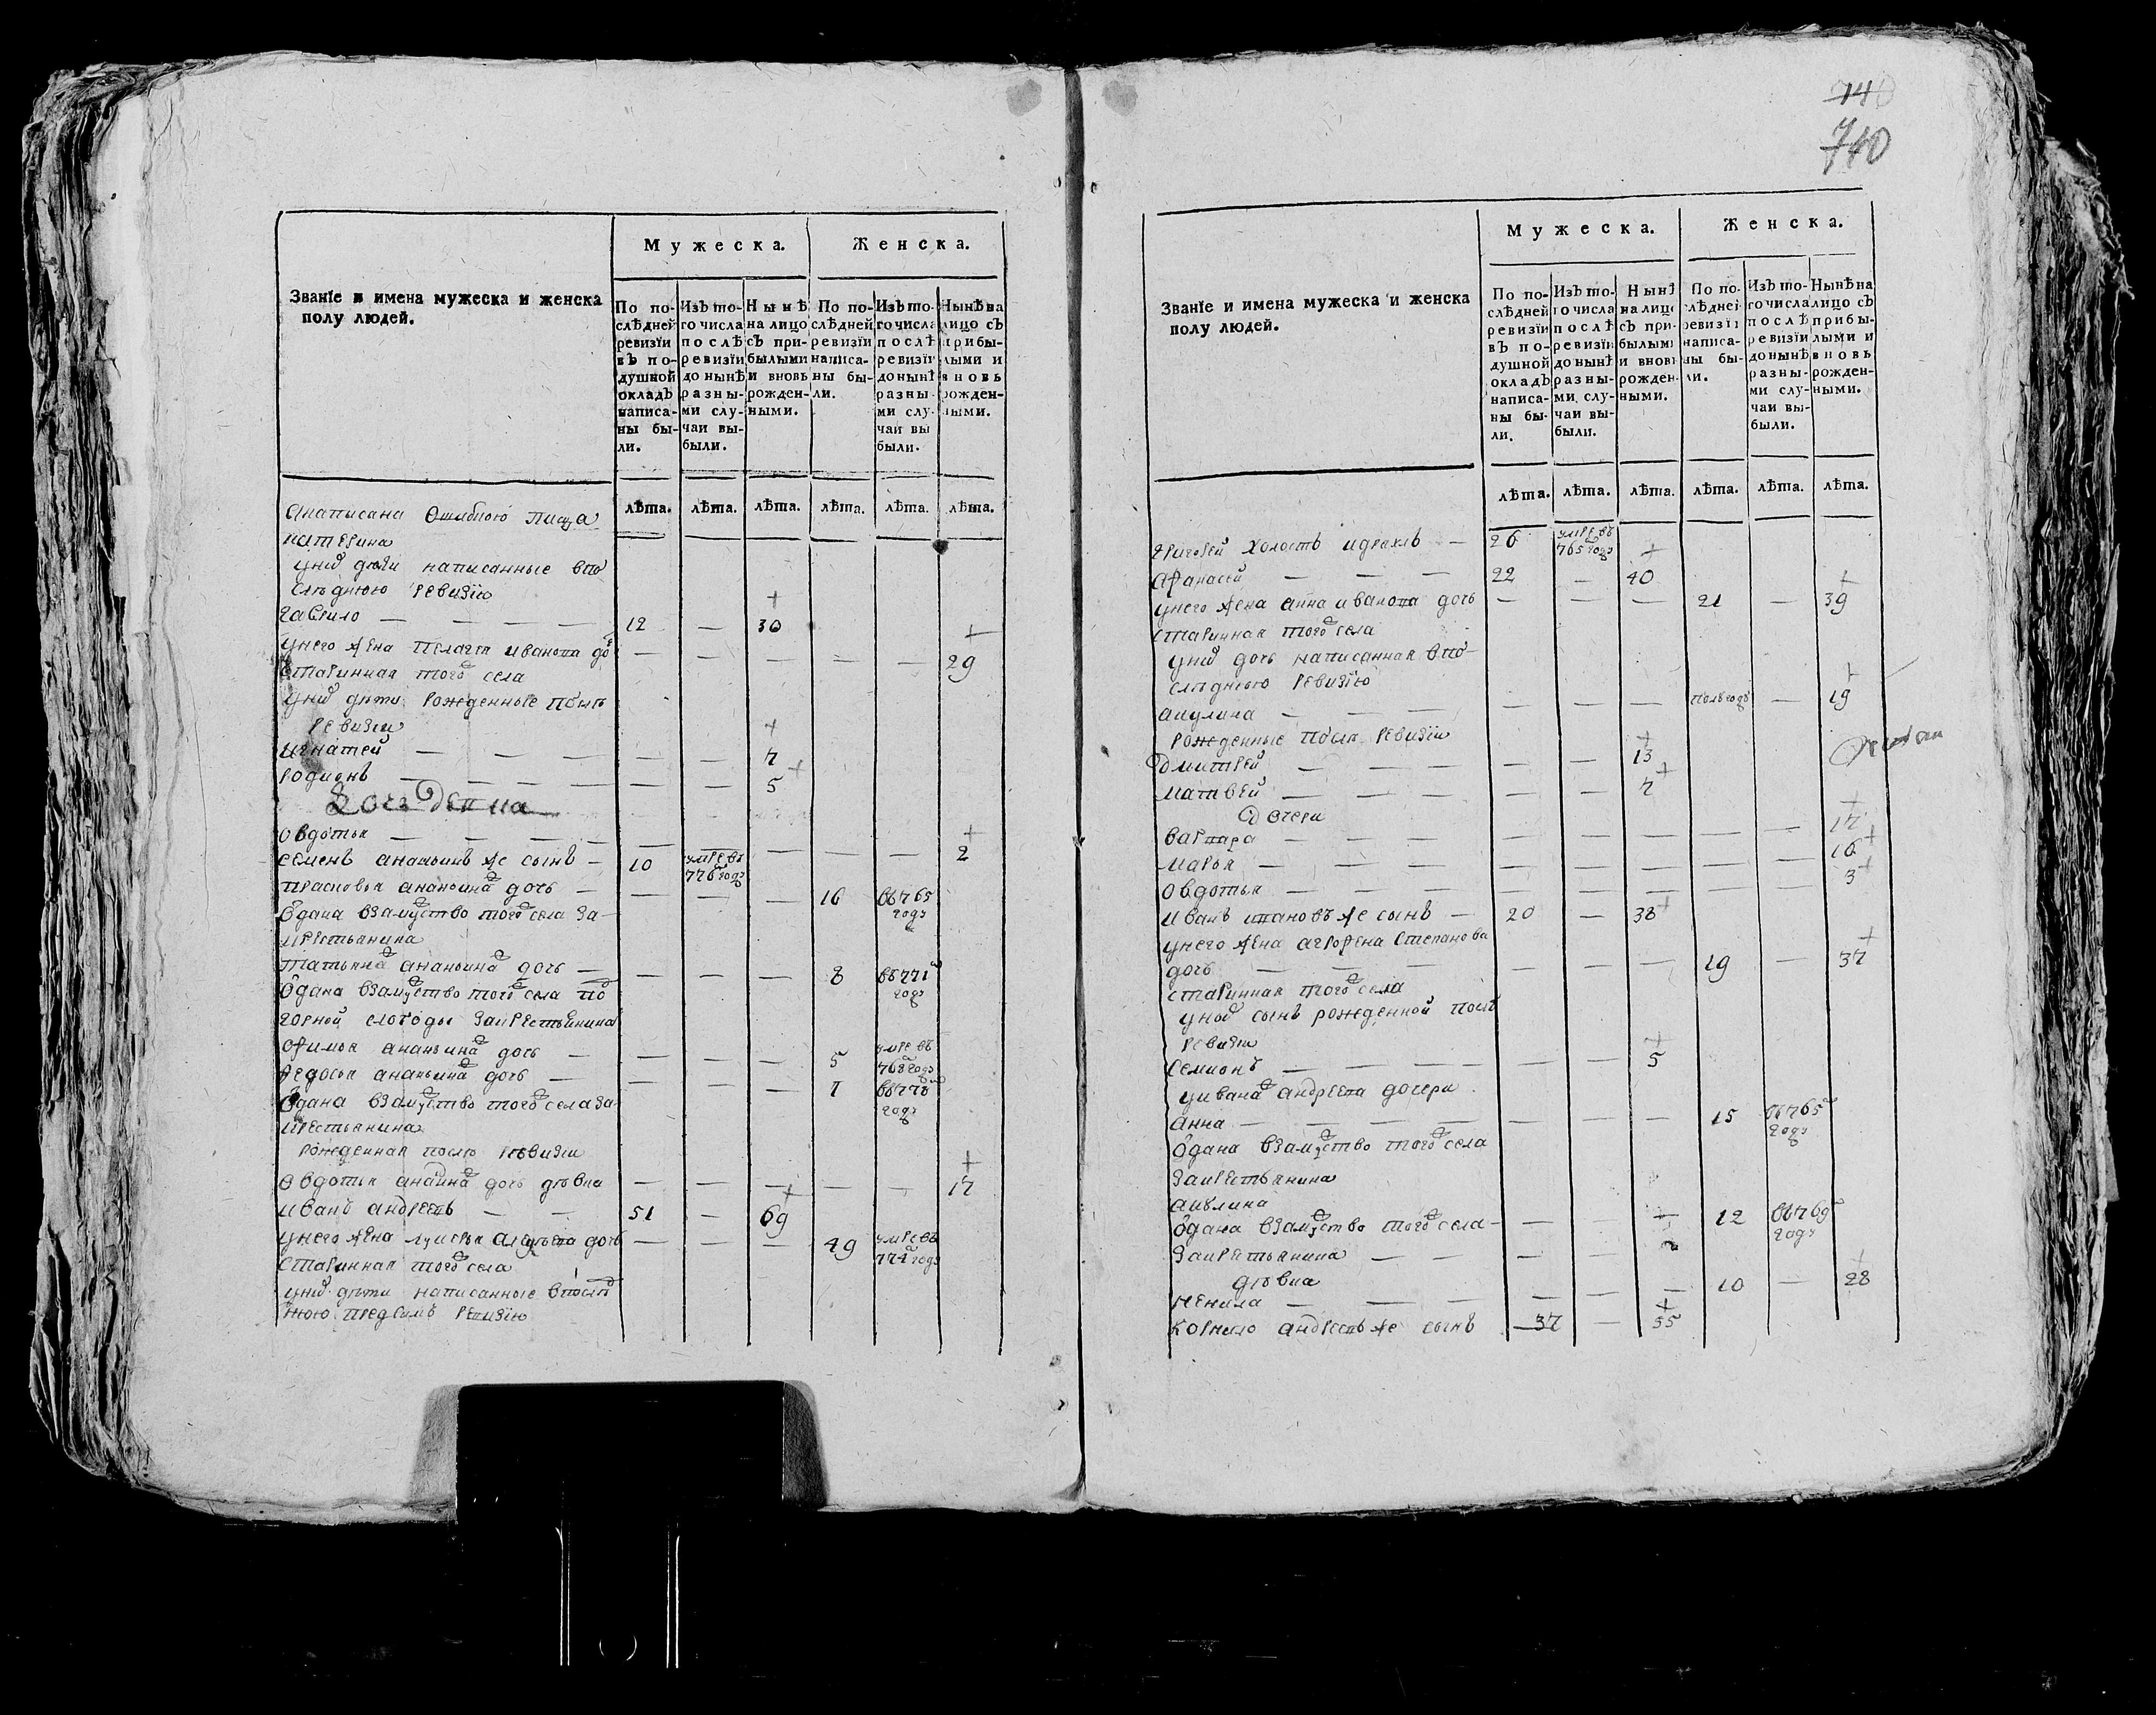 Званіе и имена мужеска и женска
полу людей.
Мужеска.
Женска.
По по-
слѣдней
ревизіи
въ по-
душной
окладъ
написа-
ны бы-
ли.
Изъ то-
го числа
послѣ
ревизіи
до нынѣ
разны-
ми слу-
чаи вы-
были.
Нынѣ
на лицо
съ при-
былыми
и вновь
рожден-
ными.
По по-
слѣдней
ревизіи
написа-
ны бы-
ли.
Изъ то-
го числа
послѣ
ревизіи
до нынѣ
разны-
ми слу-
чаи вы
были.
Нынѣ на
лицо съ
прибы-
лыми и
вновь
рожден-
ными.
лѣта. лѣта. лѣта. лѣта. лѣта. лѣта.
анаписана ошибкою писца
катерина
уних дѣти написанные впо
слѣднюю ревизию
гаврило — — — — 12 — 30
унего жена пелагея иванова до — — — — — 29
старинная того села
уних дѣти рожденные послѣ
ревизии
игнатей — — — — — — 7
родионъ — — — — — — 5
дочь девка
овдотья — — — — — — — — — 2
семенъ ананьинъ же сынъ — 10 умре въ 776 годэ
прасковья ананьина дочь — — — — 16 въ 765 годэ
одана взамуство того села за
крестьянина
татьяна ананьина дочь — — — — 8 въ 771 годэ
одана взамуство того села по
горной слободы закрестьянина
офимья ананьина дочь — — — — 5 умре въ 768 годэ
федосья ананьина дочь — — — — 1 въ 778 годэ
одана взамуство того села за
крестьянина
рожденная после ревизии
овдотья ананина дочь дѣвка — — — — — 17
иванъ андреевъ — — 51 — 69
унего жена лукерья дочь — — — 49 умре въ 774 годэ
старинная того села
уних дѣти написанные впослѣд
нюю предсимъ ревизию
740
Званіе и имена мужеска и женска
полу людей.
Мужеска.
Женска.
По по-
слѣдней
ревизіи
въ по-
душной
окладъ
написа-
ны бы-
ли.
Изъ то-
го числа
послѣ
ревизіи
до нынѣ
разны-
ми слу-
чаи вы-
были.
Нынѣ
на лицо
съ при-
былыми
и вновь
рожден-
ными.
По по-
слѣдней
ревизіи
написа-
ны бы-
ли.
Изъ то-
го числа
послѣ
ревизіи
до нынѣ
разны-
ми слу-
чаи вы-
были.
Нынѣ на
лицо съ
прибы-
лыми и
вновь
рожден-
ными.
лѣта. лѣта. лѣта. лѣта. лѣта. лѣта.
григорей холостъ идряхлъ — 26 умре въ 765 годэ
афанасей — — — 22 — 40
унего жена анна иванова дочь — — — 21 — 39
старинная того села
уних дочь написанная впо-
слѣднюю ревизию
акулина — — — — — — полгода — 19
рожденные послѣ ревизии
дмитрей — — — — — 13
матвей — — — — — 7
дочери
варвара — — — — — — — — 17
марья — — — — — — — — 16
овдотья — — — — — — — — 3
иванъ ивановъ же сынъ — 20 — 38
унего жена агрофена степанова
дочь — — — — — — 19 — 37
старинная того села
уних сынъ рожденной послѣ
ревизии
семионъ — — — — — 5
уивана андреева дочери
анна — — — — — — 15 въ 765 годэ
одана взамуство того села
закрестьянина
акулина
одана взамуство того села — — — — 12 въ 769 годэ
закрестьянина — —
дѣвка
ненила — — — — — — 10 — 28
корнило андреевъ же сынъ — 37 — 55